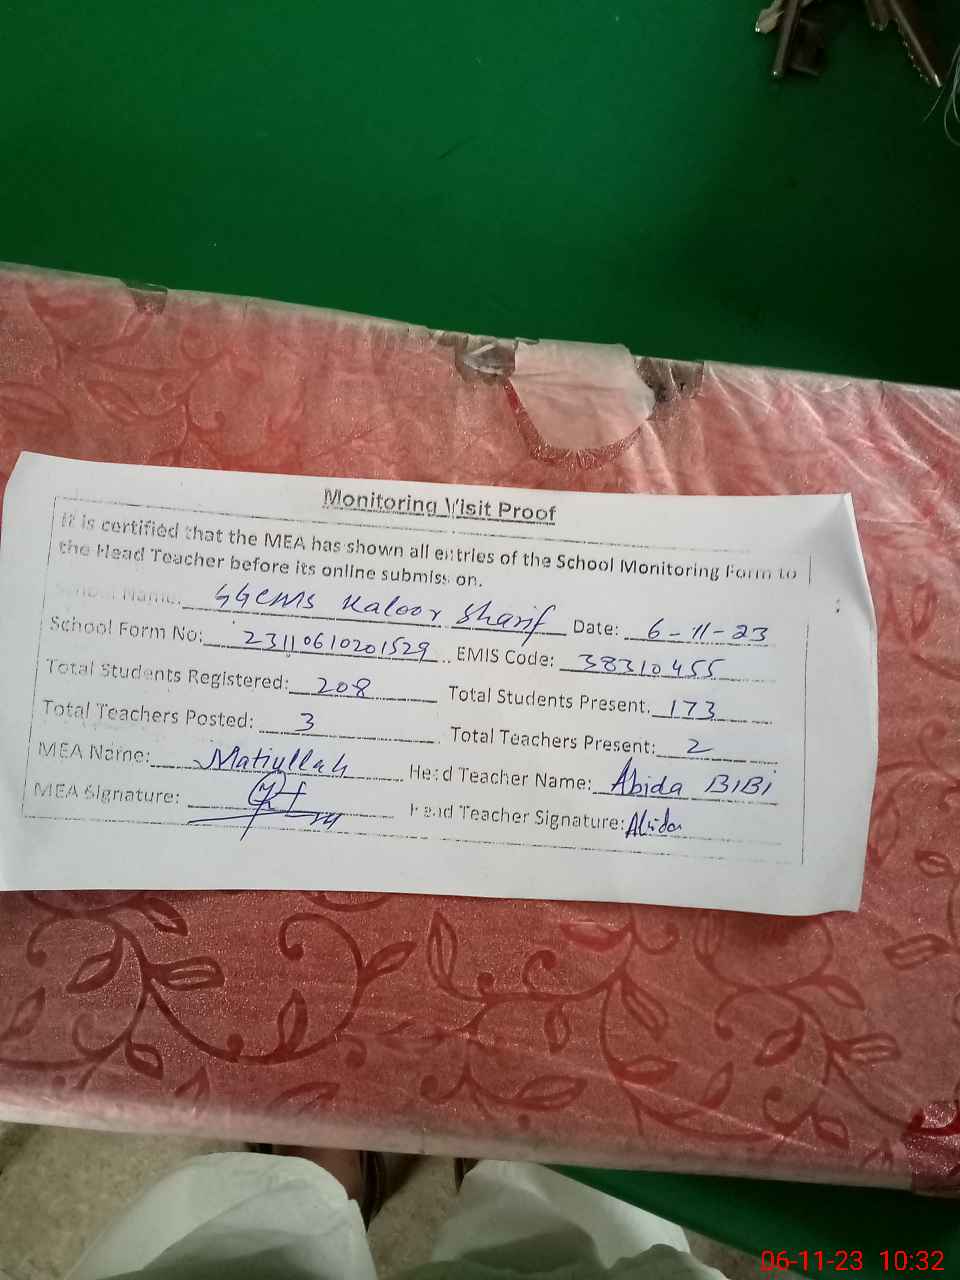 Monitoring Visit Proof
It is certified that the MEA has shown all entries of the School Monitoring Form to
the Head Teacher before its online submission.
School Name: GGCMS Kaloor Sharif Date: 6-11-23
School Form No: 23110610201529 EMIS Code: 38310455
Total Students Registered: 208 Total Students Present. 173
Total Teachers Posted: 3 Total Teachers Present: 2
MEA Name: Matiullah Head Teacher Name: Abida BIBI
MEA Signature: Head Teacher Signature: Abida
06-11-23 10:32